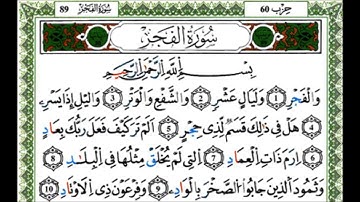 حزب 60
سورة الفجر 89
سُورَةُ الْفَجْرِ
بِسْمِ اللَّهِ الرَّحْمَٰنِ الرَّحِيمِ
وَالْفَجْرِ 1 وَلَيَالٍ عَشْرٍ 2 وَالشَّفْعِ وَالْوَتْرِ 3 وَالَّيْلِ إِذَا يَسْرِ
4 هَلْ فِي ذَٰلِكَ قَسَمٌ لِّذِي حِجْرٍ 5 أَلَمْ تَرَ كَيْفَ فَعَلَ رَبُّكَ بِعَادٍ
6 إِرَمَ ذَاتِ الْعِمَادِ 7 الَّتِي لَمْ يُخْلَقْ مِثْلُهَا فِي الْبِلَٰدِ 8
وَثَمُودَ الَّذِينَ جَابُوا الصَّخْرَ بِالْوَادِ 9 وَفِرْعَوْنَ ذِي الْأَوْتَادِ 10